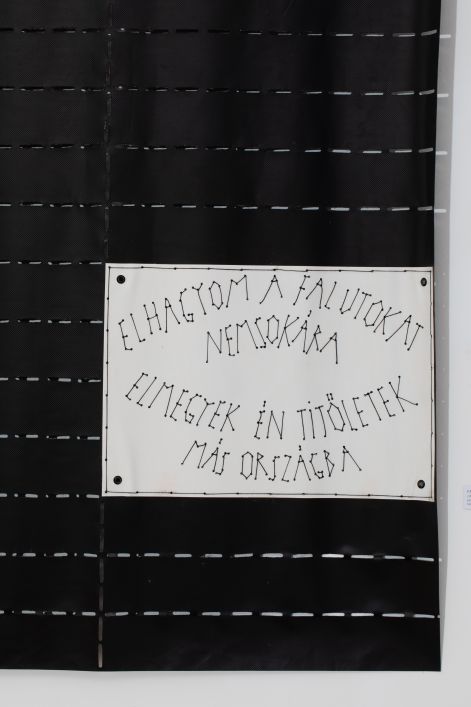 ELHAGYOM A FALUTOKAT
NEMSOKÁRA
ELMEGYEK ÉN TITÖLETEK
MÁS ORSZÁGBA